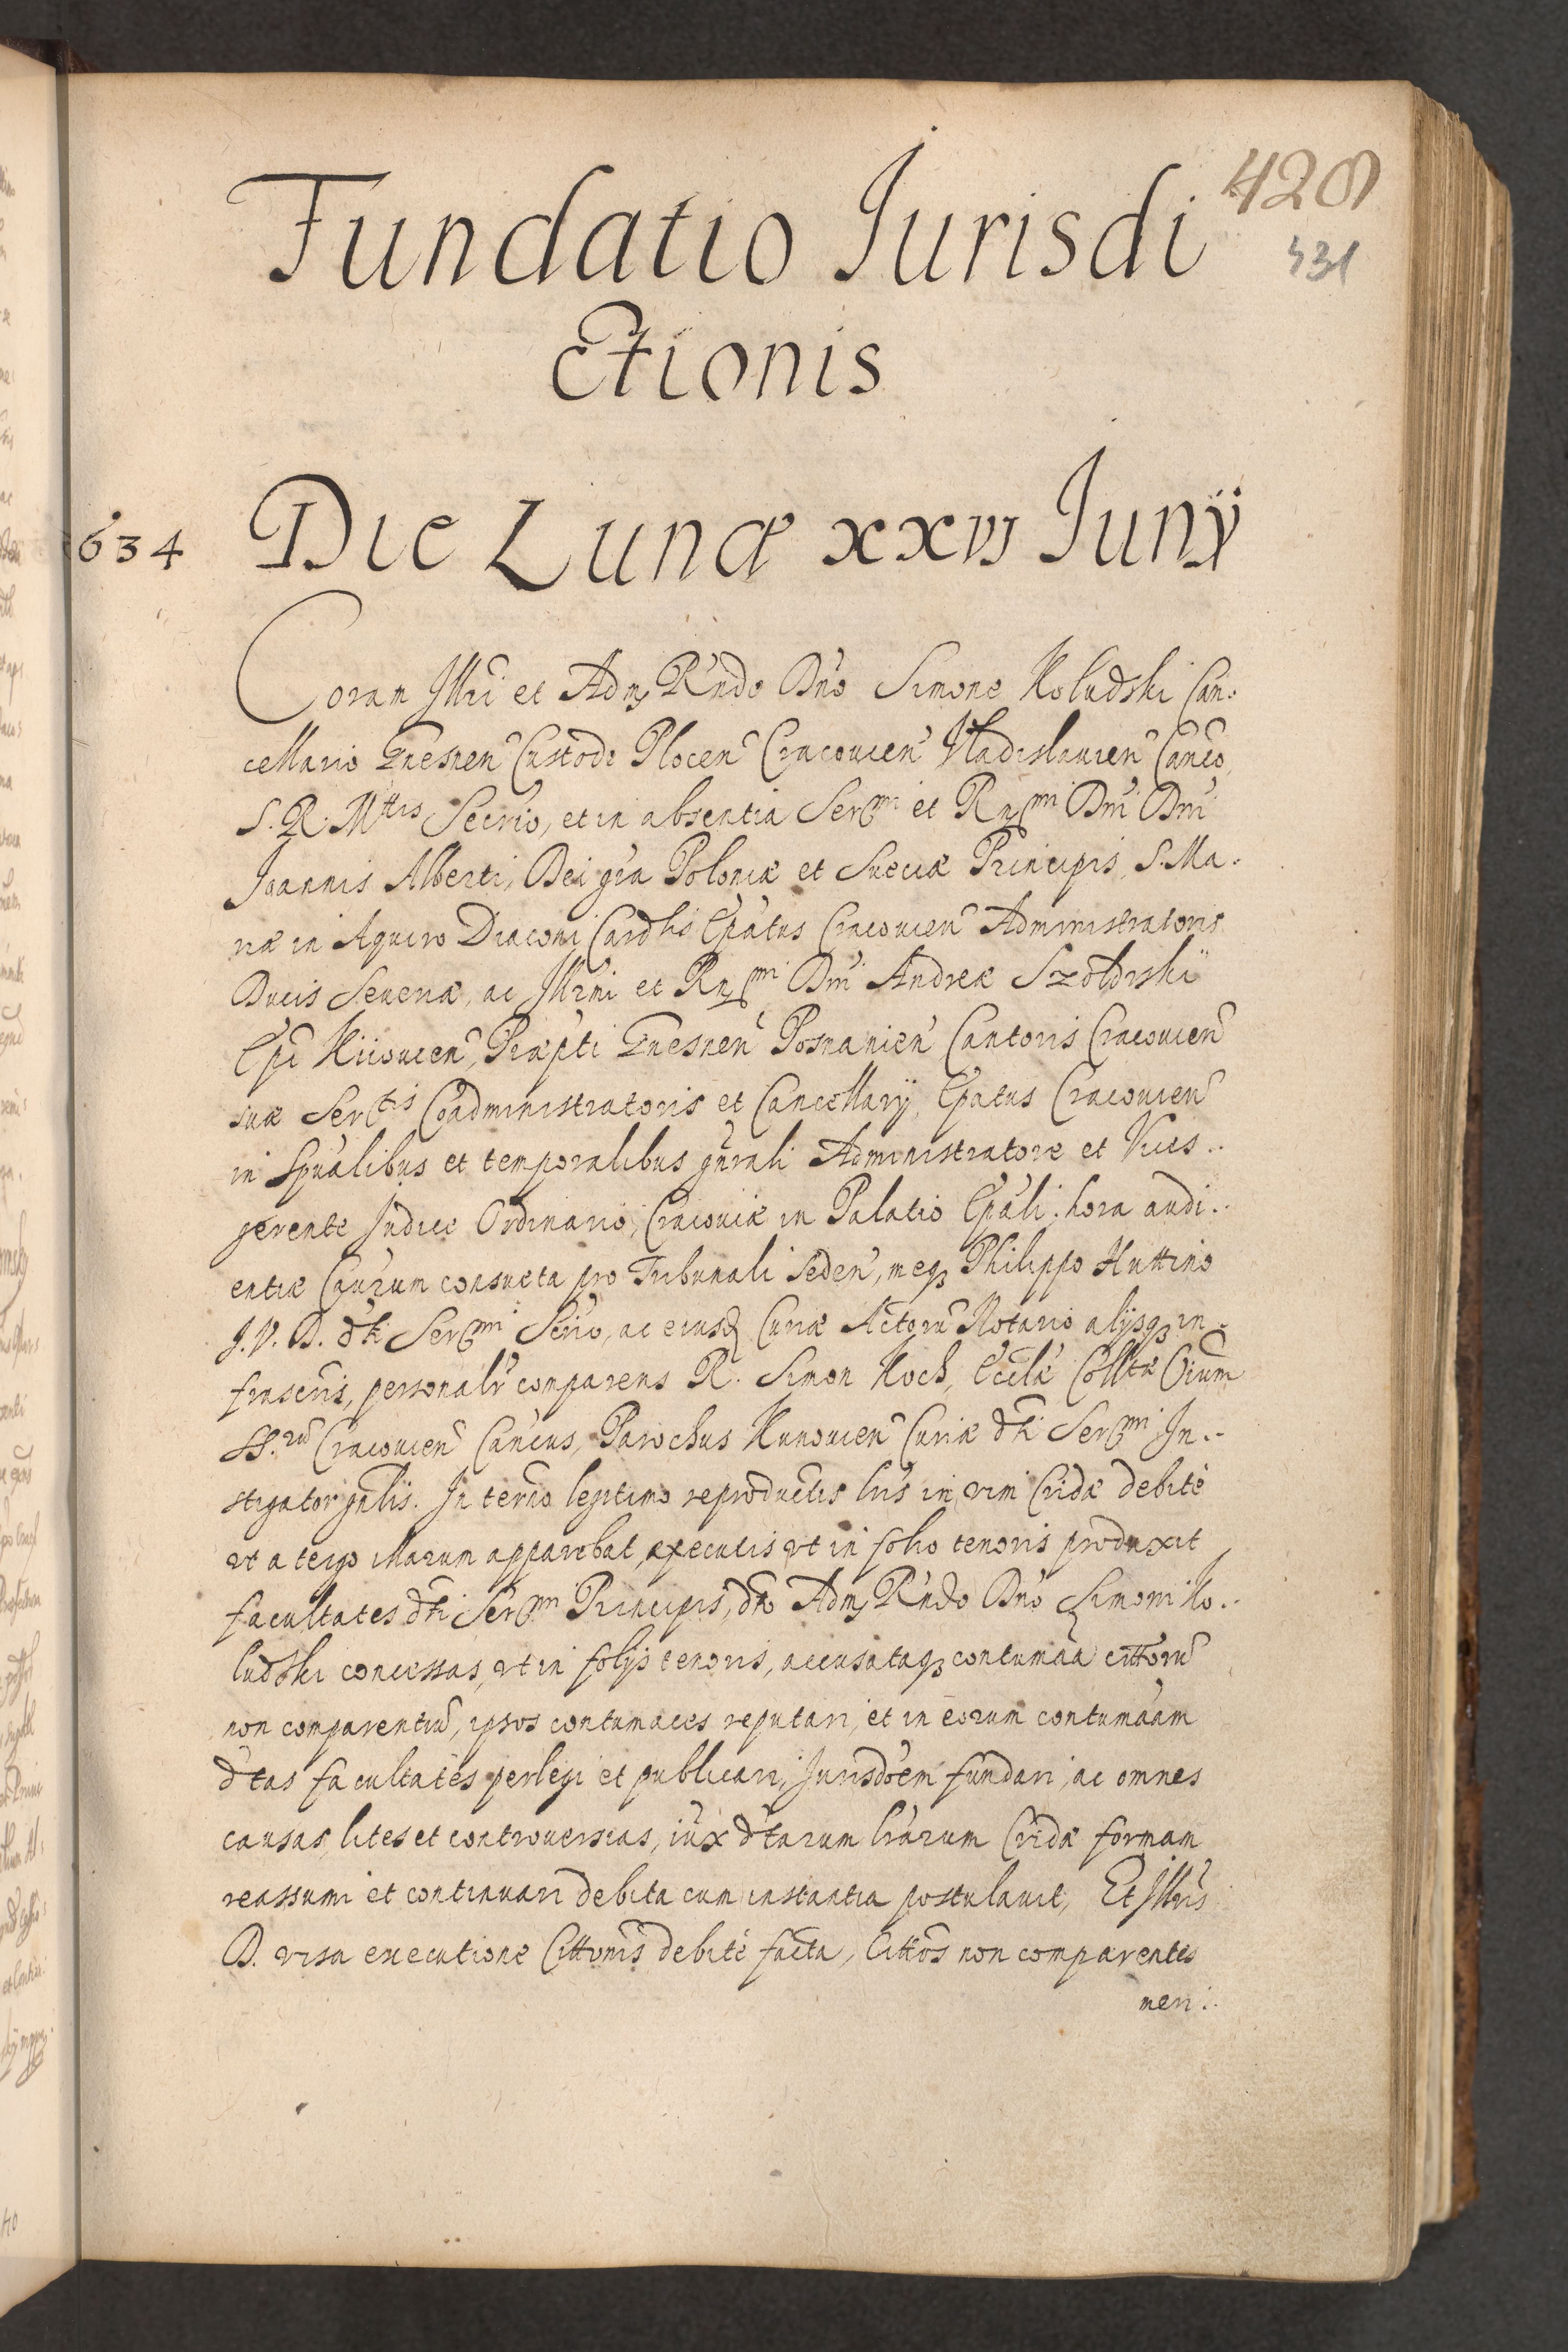 420
431
Fundatio Jurisdi
ctionis
634 Die Lunæ xxvj Junÿ
Coram Jllri et Adm Rndo Dno Simone Koludzki Can-
cellario Gnesnen Custode Plocen Cracouien Vladislauien Canco
S. R. Mttis Secrio, et in absentia Sermi et Rnmi Dni Dni
Joannis Alberti, Dei gra Poloniæ et Sueciæ Principis, S. Ma-
riæ in Aquiro Diaconi Cardlis Epatus Cracouien Administratoris
Ducis Seueriæ, ac Jllrmi et Rnmi Dni Andreæ Szołdrskÿ
Epi Kiiouien, Præpti Gnesnen Posnanien Cantoris Cracouien
suæ Sertis Coadministratoris et Cancellarÿ Epatus Cracouien
in Spualibus et temporalibus gnrali Administratore et Vices..
gerente Judice Ordinario, Cracouiæ in Palatio Epali, hora audi..
entiæ Caurum consueta pro Tribunali Seden, meq Philippo Huttino
J. V. D. dti Sermi Secrio, ac eiusd Curiæ Actoru Notario alijsq in-
frascris, personalr comparens R. Simon Koch, Ecclæ Colltæ Oium
SS.ru Cracouien Cancus, Parochus Kunouien Curiæ dti Sermi In..
stigator gnlis. In terno legitimo reproductis lris in vim Cridæ debitè
vt a tergo illarum apparebat, executis vt in folio tenoris produxit
facultates dti Sermi Principis, dto Adm Rndo Dno Simoni Ko..
ludzki concessas, vt in folijs tenoris, accusataq contumaa cittoru
non comparentiu, ipsos contumaces reputari, et in eorum contumaam
dtas facultates perlegi et publicari, Jurisdoem fundari, ac omnes
causas, lites et controuersias, iux dtarum lrarum Cridæ formam
reassumi et continuari debita cum instantia postulauit, Et Jllris
D. visa executione Cittonis debitè facta, Cittos non comparentes
meri..